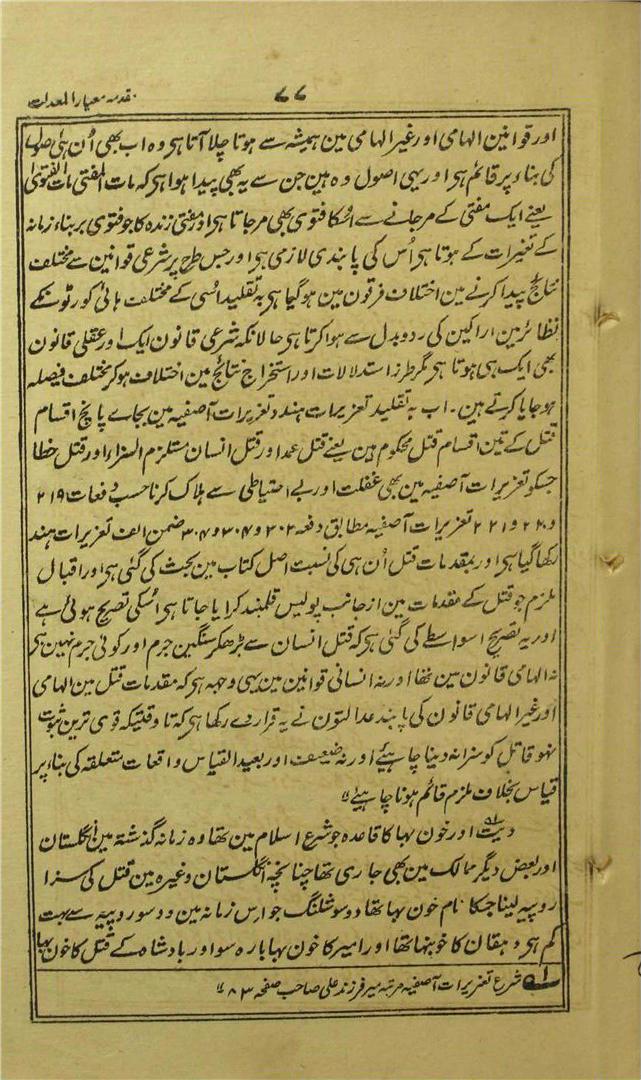 مقدمہ معیار المعدلت
۷۷
اور قوانین الہامی اور غیر الہامی مین ہمیشہ سے ہوتا چلا آتا ہی وہ اب بھی اُن ہی اصول
کی بناء پر قائم ہی اور یہی اصول وہ ہین جن سے یہ بھی پیدا ہوا ہی کہ مات المفتی مات الفتویٰ
یعنے ایک مفتی کے مرجانے سے اُسکا فتوی بھی مرجاتا ہی اور مفتی زندہ کا جو فتوی بر بناء زمانہ
کے تغیرات کے ہوتا ہی اُس کی پابندی لازمی ہی اور جس طرح پر شرعی قوانین سے مختلف
نتائج پیدا کرنے مین اختلاف فرقون مین ہوگیا ہی بہ تقلید اُسی کے مختلف ہائی کورٹون کے
نظائر مین اراکین کی ردوبدل سے ہوا کرتا ہی حالانکہ شرعی قانون ایک اور عقلی قانون
بھی ایک ہی ہوتا ہی مگر طرز استدلالات اور استخراج نتائج مین اختلاف ہوکر مختلف فیصلہ
ہوجایا کرتے ہین۔ اب بہ تقلید تعزیرات ہند و تعزیرات آصفیہ مین بجاے پانچ اقسام
قتل کے تین اقسام قتل محکوم ہین یعنے قتل عمد اور قتل انسان مستلزم السزاء اور قتل خطا
جسکو تعزیرات آصفیہ مین بھی غفلت اور بے احتیاطی سے ہلاک کرنا حسب دفعات ۲۱۹
و ۲۲۰ و ۲۲۱ تعزیرات آصفیہ مطابق دفعہ ۳۰۲ و ۳۰۴ و ۳۰۴ ضمن الف تعزیرات ہند
رکھا گیا ہی اور بمقدمات قتل اُن ہی کی نسبت اصل کتاب مین بحث کی گئی ہی اور اقبال
ملزم جو قتل کے مقدمات مین از جانب پولیس قلمبند کرایا جاتا ہی اُسکی تصریح ہوئی ہے
اور یہ تصریح اسواسطے کی گئی ہی کہ قتل انسان سے بڑھکر سنگین جرم اور کوئی جرم نہین ہی
نہ الہامی قانون مین تھا اور نہ انسانی قوانین مین یہی وجہہ ہی کہ مقدمات قتل مین الہامی
اور غیر الہامی قانون کی پابند عدالتون نے یہ قرار دے رکھا ہی کہ تاوقتیکہ قوی ترین ثبوت
نہو قاتل کو سزا نہ دینا چاہیئے اور نہ ضعیف اور بعید القیاس واقعات متعلقہ کی بناء پر
قیاس بخلاف ملزم قائم ہونا چاہیئے
دیت اور خون بہا کا قاعدہ جو شرع اسلام مین تھا وہ زمانہ گذشتہ مین انگلستان
اور بعض دیگر ممالک مین بھی جاری تھا چنانچہ انگلستان وغیرہ مین قتل کی سزا
روپیہ لینا جسکا نام خون بہا تھا دوسو شلنگ جو اس زمانہ مین دوسو روپیہ سے بہت
کم ہی دہقان کا خونبہا تھا اور امیر کا خون بہا بارہ سو اور بادشاہ کے قتل کا خون بہا
لہ شرع تعزیرات آصفیہ مرتبہ میر فرزند علی صاحب صفحہ ۸۳